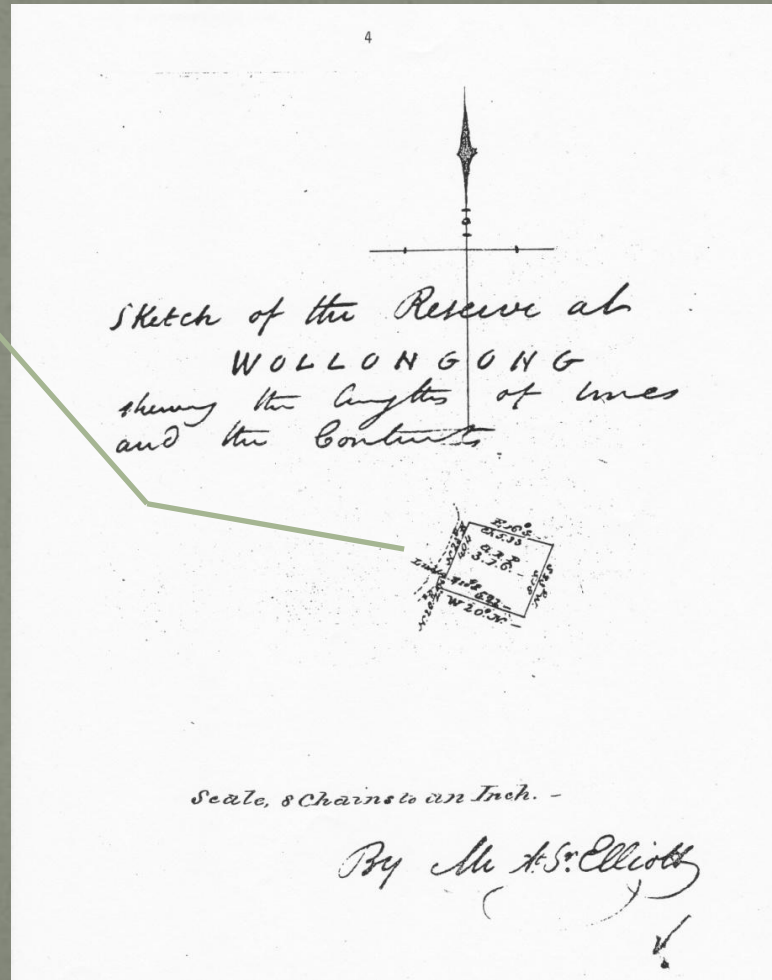 4
Sketch of the Reserve at
WOLLONGONG
shewing the lengths of lines
and the Contents
E 16° S.
5.33
A. R. P
3.1.6.-
6.92-
W 20° N. -
Scale, 8 Chains to an Inch. -
By Mr A. Sr. Elliott